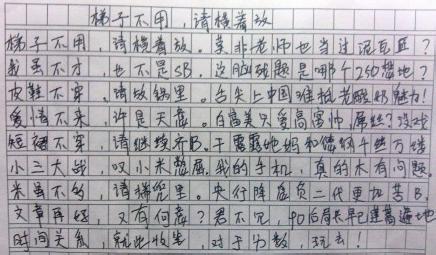 梯子不用，请横着放
梯子不用，请横着放。莫非老师也当过泥瓦匠？
我虽不才，也不是SB，这脑残题是哪个250出地？
皮鞋不穿，请放锅里。舌尖上中国谁抵老酸奶魅力！
爱情不来，许是天意。白富美只爱高富帅，屌丝？没戏
短裙不穿，请继续齐B。干露露她妈和她的千丝万缕
小三大战，叹小米憋屈。我的手机，真的木有问题。
米虽不多，请揣兜里。央行降息负二代更加苦B。
文章再好，又有何意？君不见，90后局长早已遍地
时间关系，就此收笔，对于分数，玩去！